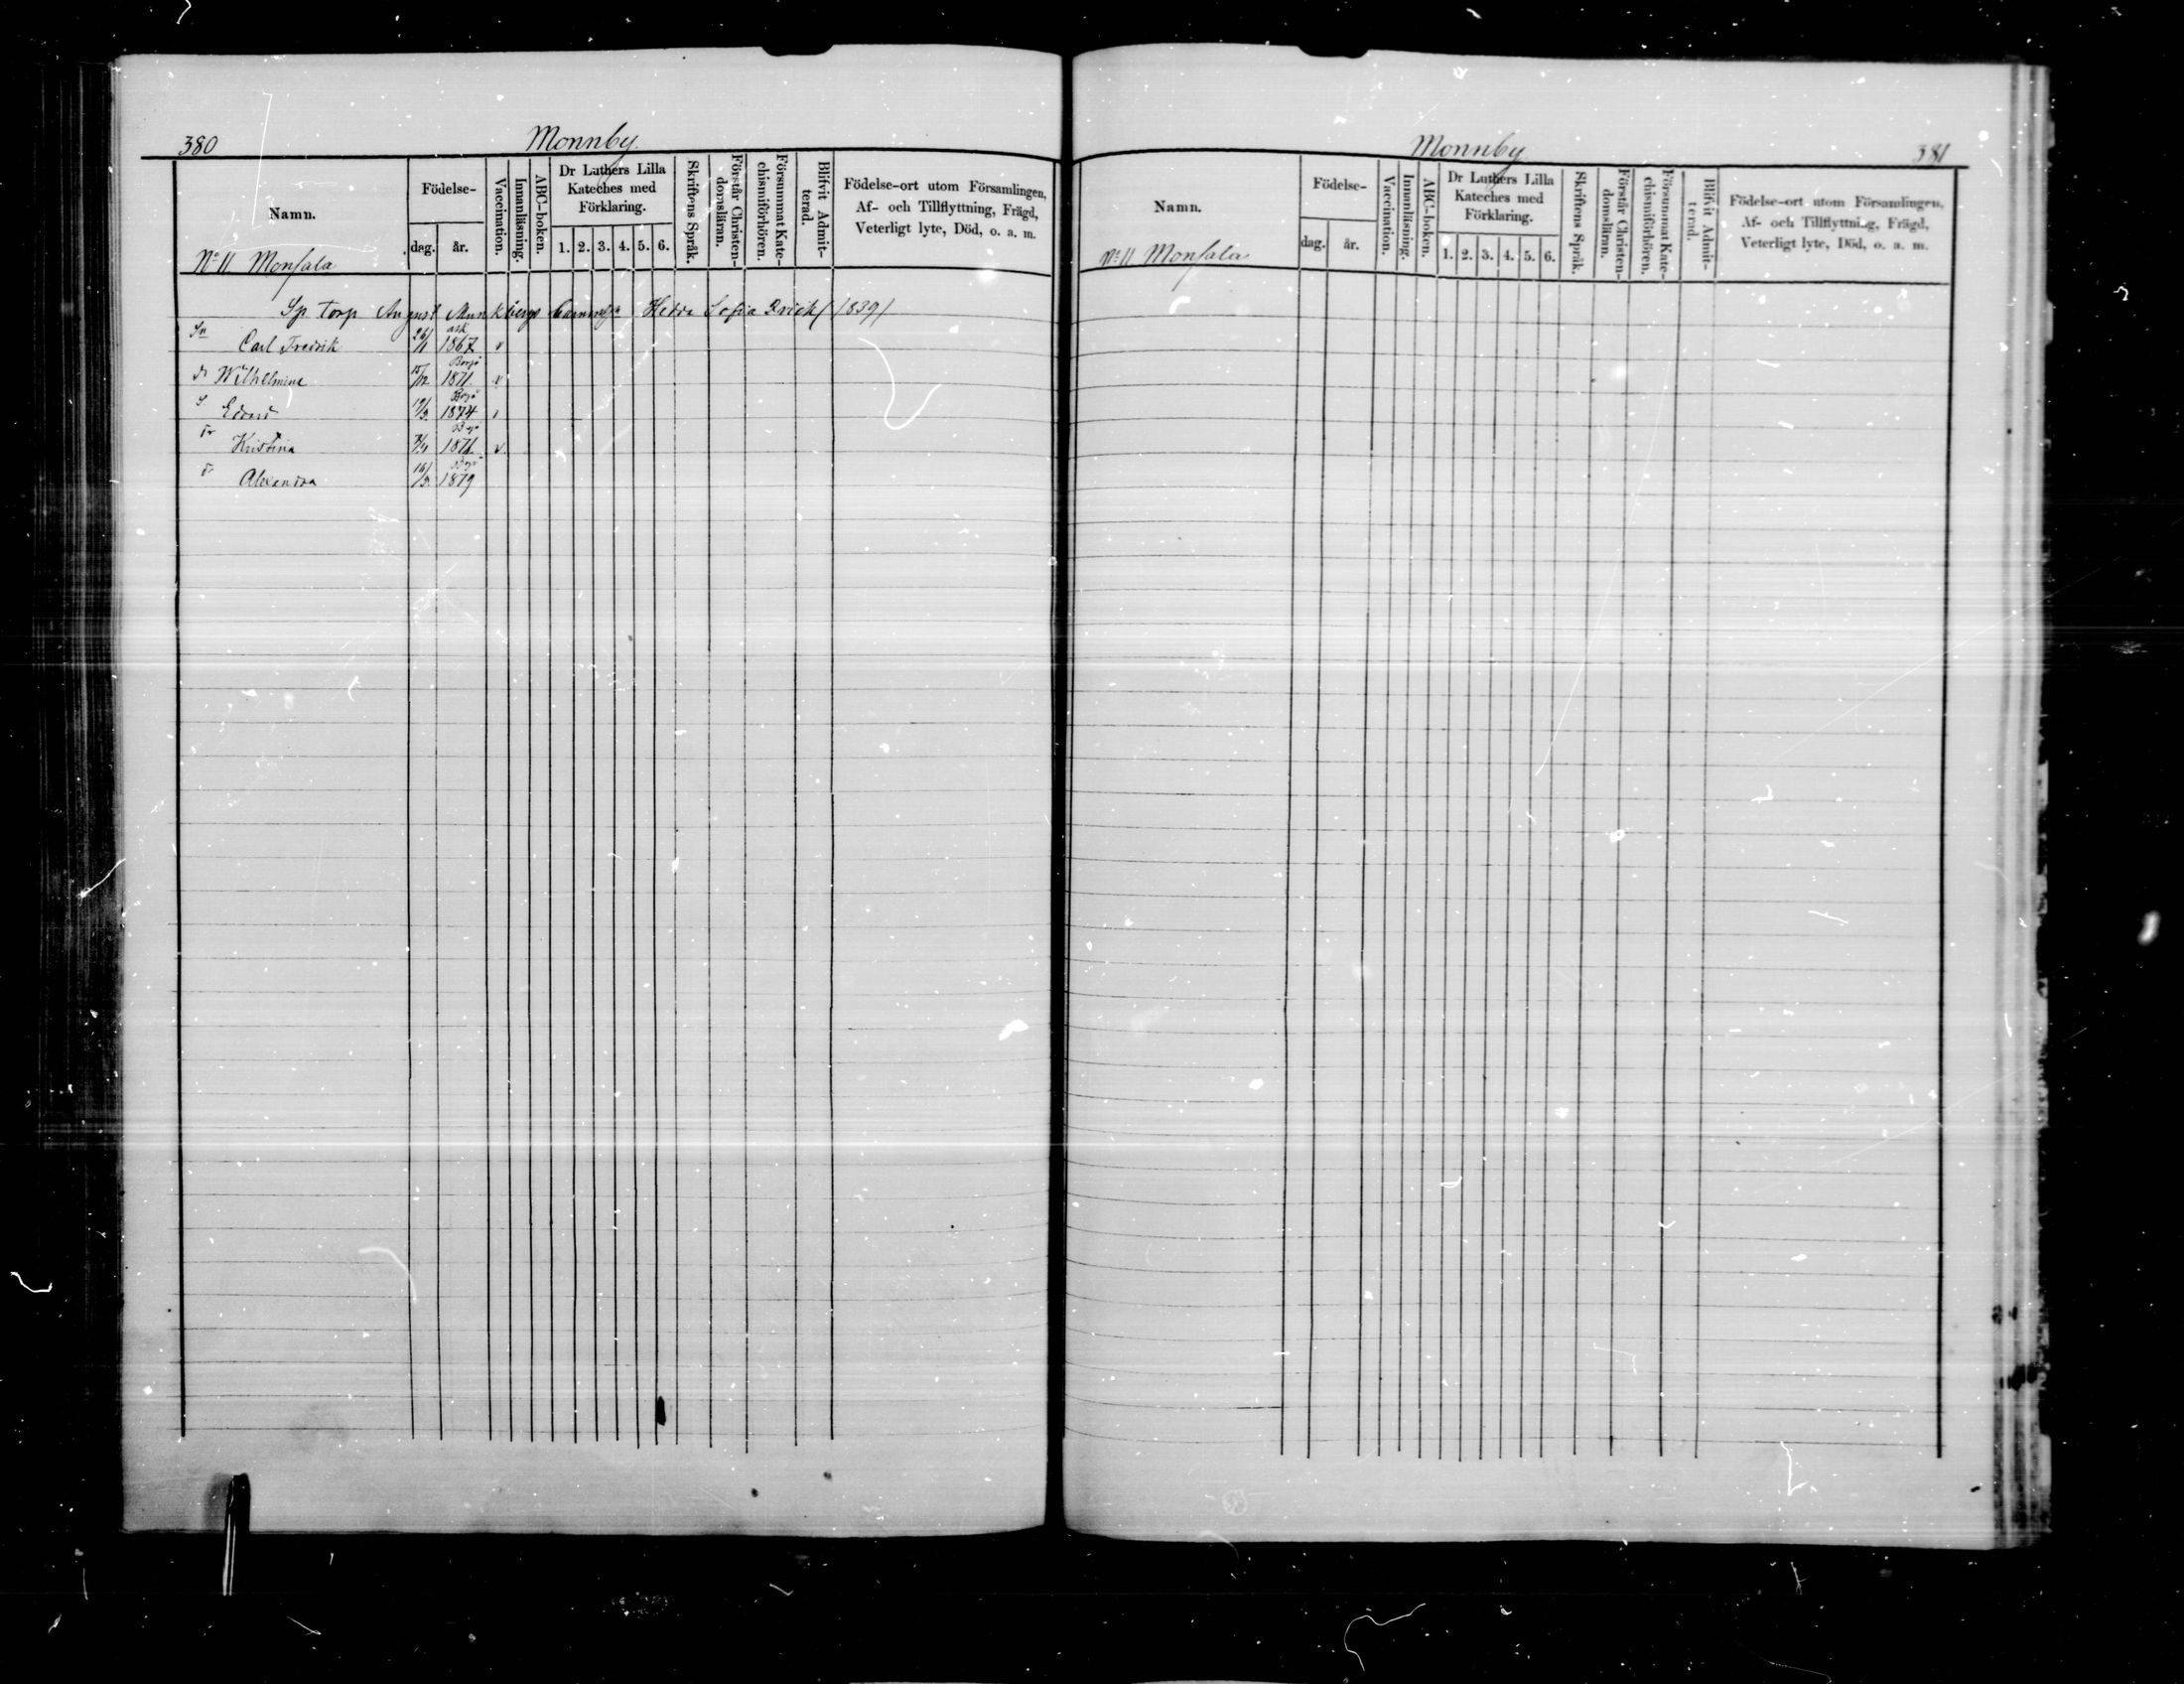 380 Monnby
Namn. Födelse- dag. år. Vaccination. Innanläsning. ABC-boken. Dr Luthers Lilla Kateches med Förklaring. 1. 2. 3. 4. 5. 6. Skriftens Språk. Förstår Christendomsläran. Försummat Katechismiförhören. Blifvit Admitterad. Födelse-ort utom Församlingen, Af- och Tillflyttning, Frägd, Veterligt lyte, Död, o. a. m.
No 11 Monsala
Sp Torp August Munkbergs barn Hedda Sofia (1839)
Sn Carl Fredrik 26/1 ask 1867 v
dr Wilhelmina 15/12 Borgå 1871 v
S Edvard 19/3 Borgå 1874 v
dr Kristina Borgå v
dr Alexandra 16/3 Borgå 1879
Monnby 381
Namn. Födelse- dag. år. Vaccination. Innanläsning. ABC-boken. Dr Luthers Lilla Kateches med Förklaring. 1. 2. 3. 4. 5. 6. Skriftens Språk. Förstår Christendomsläran. Försummat Katechismiförhören. Blifvit Admitterad. Födelse-ort utom Församlingen, Af- och Tillflyttning, Frägd, Veterligt lyte, Död, o. a. m.
No 11 Monsala